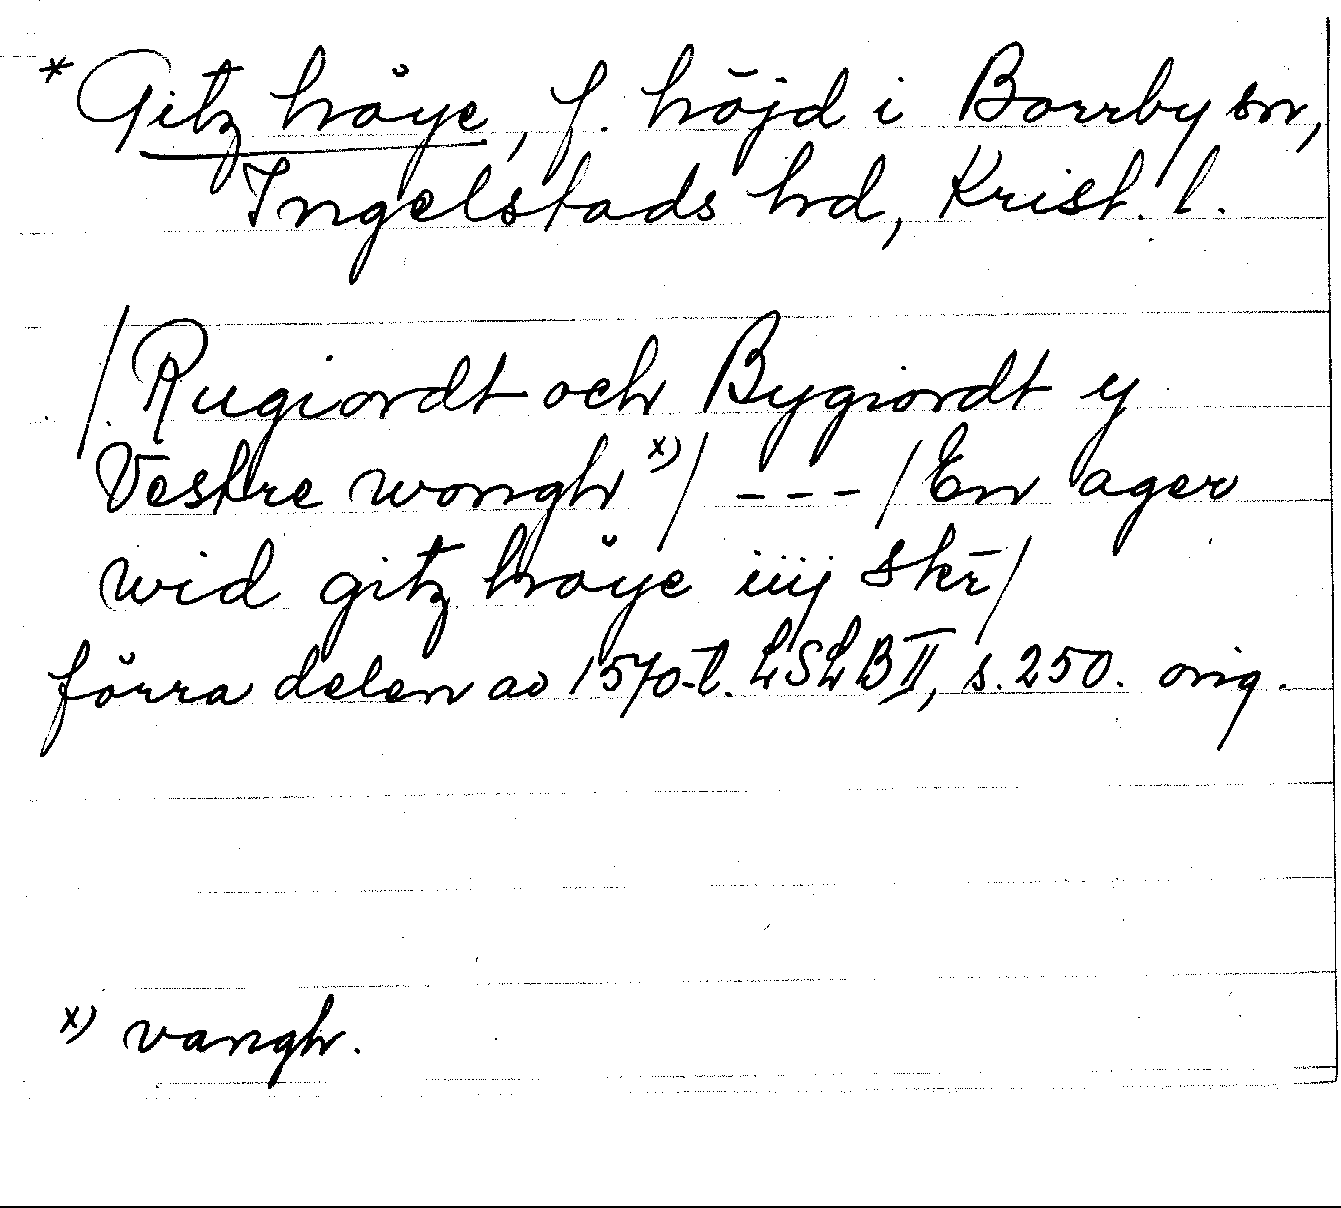 * Gitz höye, f. höjd i Borrby sn,
Ingelstads hd, Krist. l.
/Rugiordt och Bygiordt y
Vestre wongh x)/ --- /En ager
wid gitz höye iiij skr̄/
förra delen av 1570-t. LSLB II, s. 250. orig.
x) vangh.